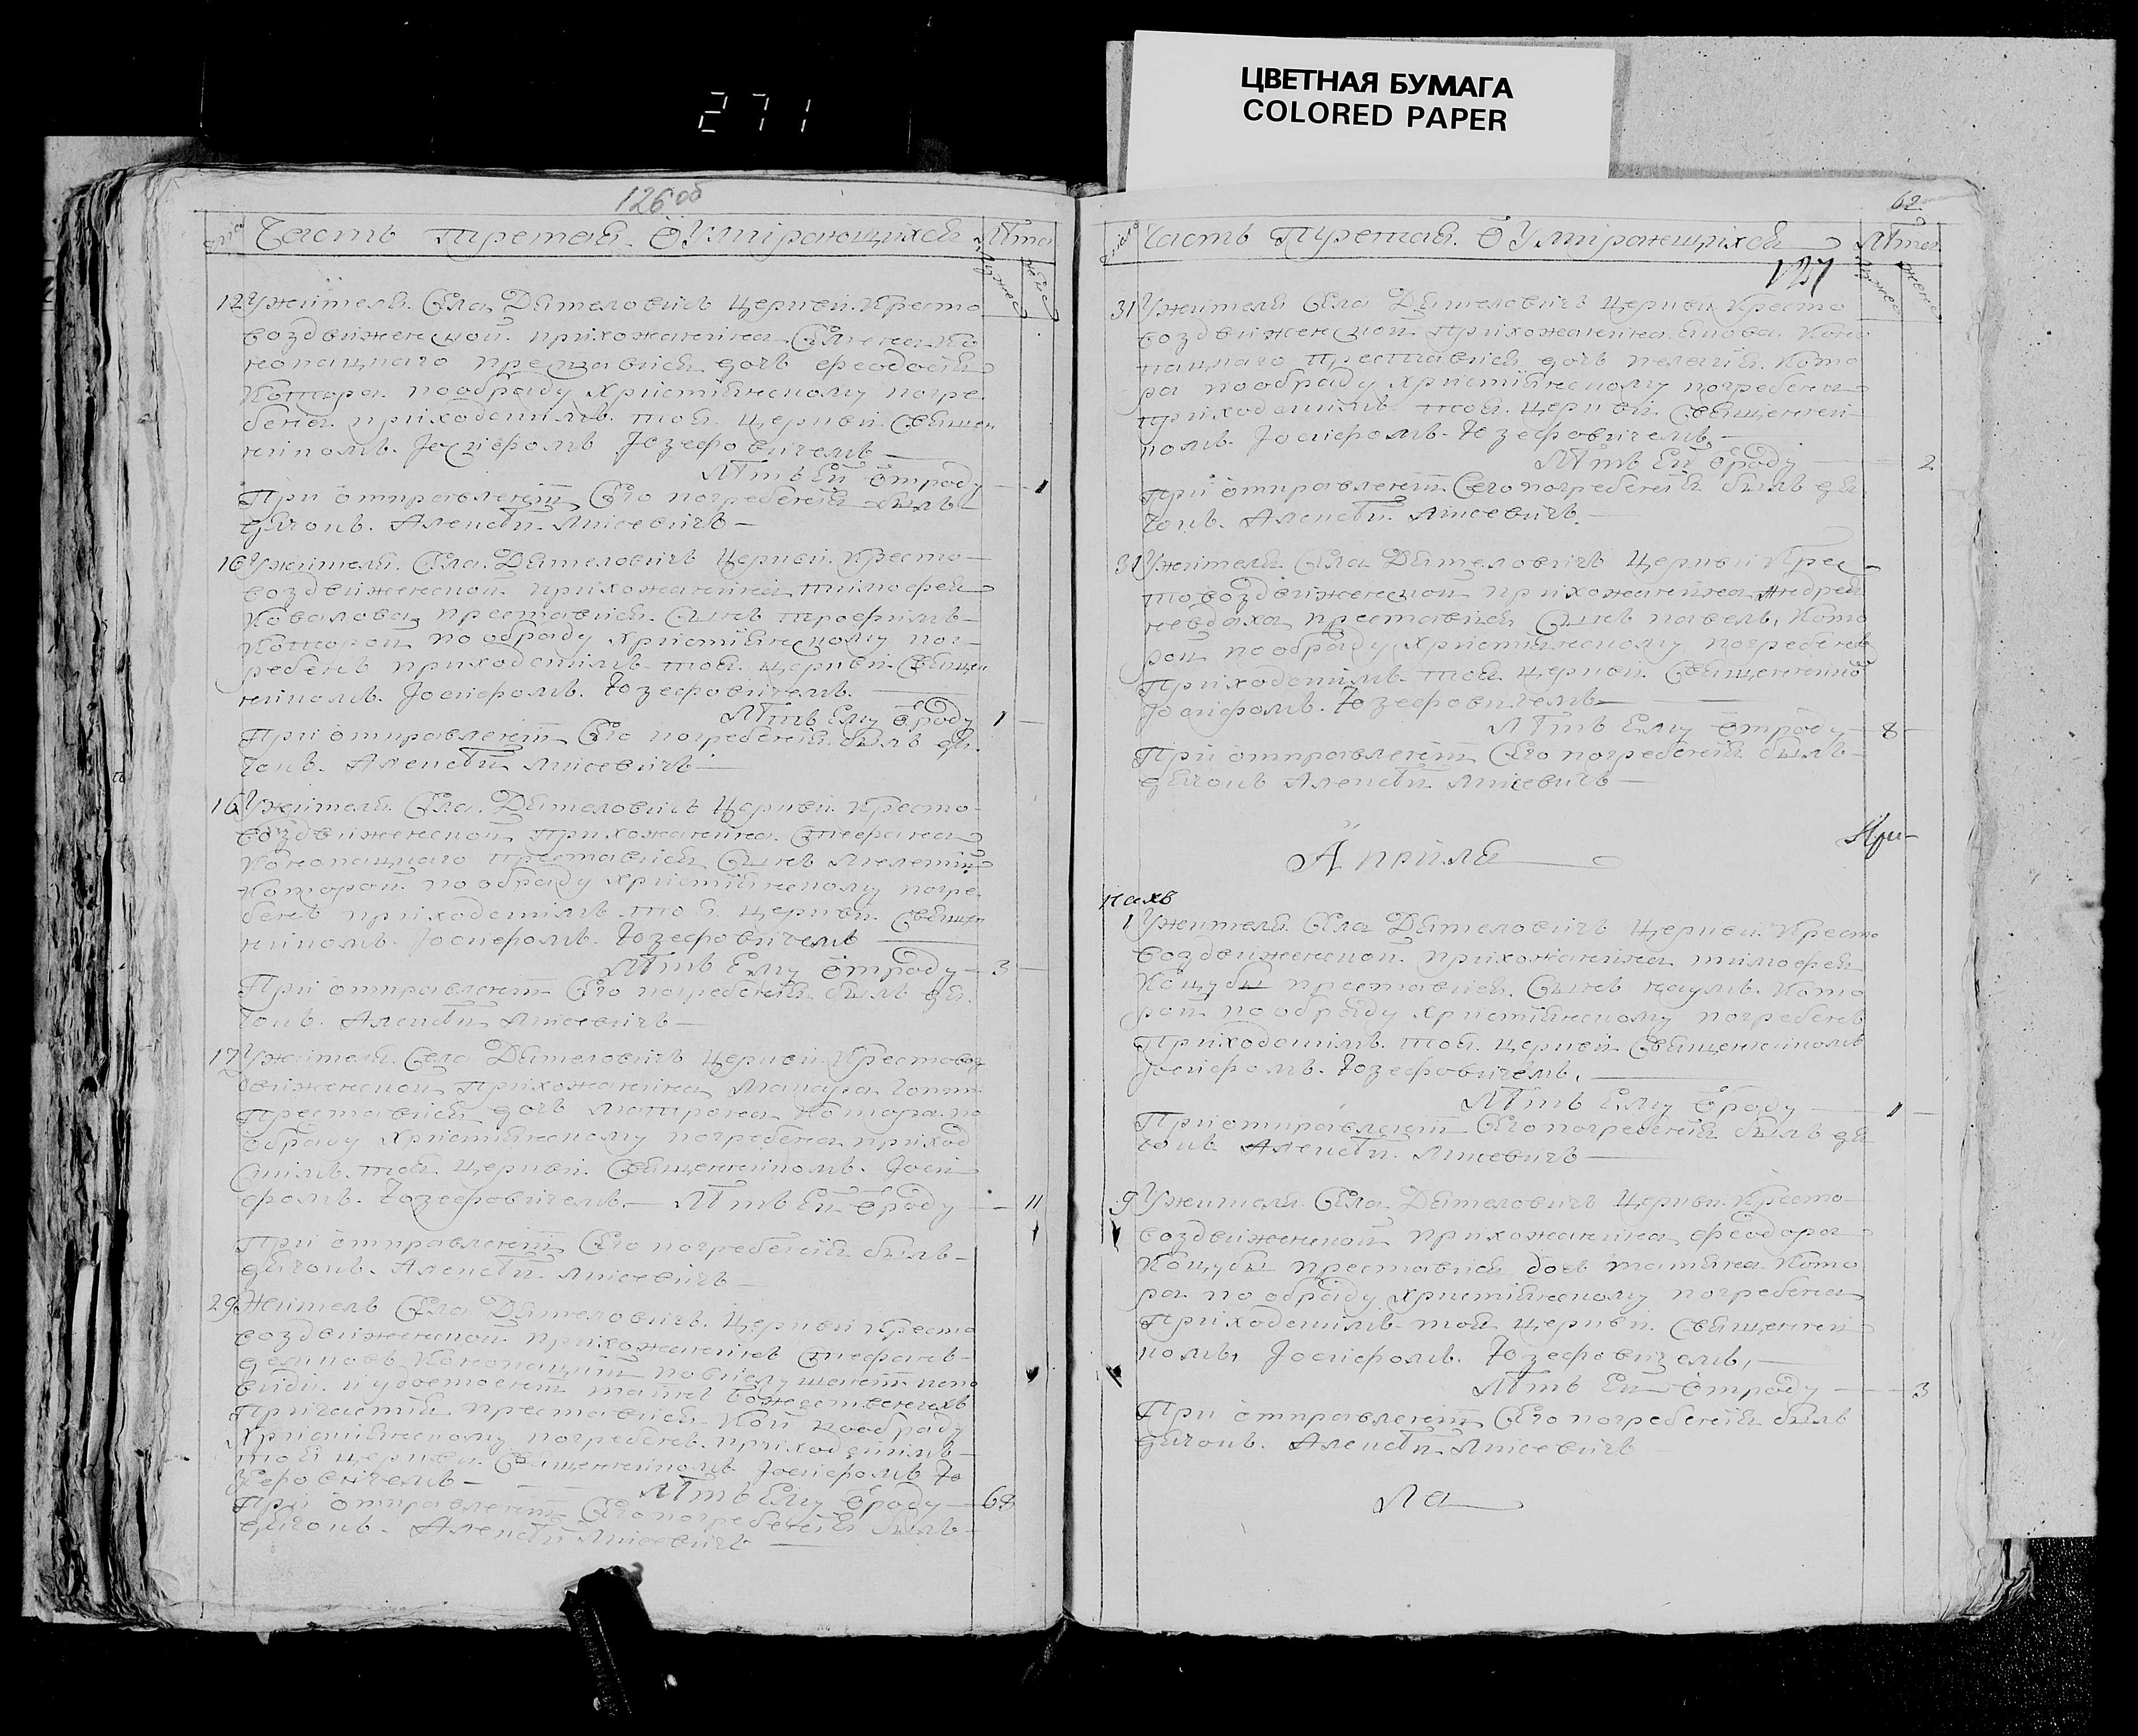 ЦВЕТНАЯ БУМАГА
COLORED PAPER
271
126об
Часть третая ѿ Умірающихся Лѣта
12 Ужителя Села Дятеловичь Церкви Кресто
воздвиженской прихожанина
преставися дочь феодосія
Котора пообряду христіянскому погре
бена приходскимъ тоя церкви Священ
никомъ Іосифомъ Юзефовичемъ
Лѣтъ Ей ѿроду 1
При отправленіи Сего погребенія былъ
дячокъ Алексѣй Лисевичь
16 Ужителя Села Дятеловичь Церкви Кресто
воздвиженской прихожанина тимофея
Ковалова преставися Сынъ трофимъ
Которой пообряду христіянскому пог
ребенъ приходскимъ тоя церкви Священ
никомъ Іосифомъ Юзефовичемъ
Лѣтъ Ему ѿроду 1
При отправленіи Сего погребенія былъ дя
чокъ Алексѣй Лисевичь
16 Ужителя Села Дятеловичь Церкви Кресто
воздвиженской прихожанина Стефана
Конопацкаго преставися Сынъ Мелетій
Которой пообряду христіянскому погре
бенъ приходскимъ тоя церкви Священ
никомъ Іосифомъ Юзефовичемъ
Лѣтъ Ему ѿроду 3
При отправленіи Сего погребенія былъ дя
чокъ Алексѣй Лисевичь
17 Ужителя Села Дятеловичь Церкви Крестовоз
движенской прихожанина Макара
Преставися дочь матрона Котора по
обряду христіянскому погребена приход
скимъ тоя церкви Священникомъ Іоси
фомъ Юзефовичемъ Лѣтъ Ей ѿроду 11
При отправленіи Сего погребенія былъ
дячокъ Алексѣй Лисевичь
29 Житель Села Дятеловичь Церкви Кресто
воздвиженской прихожанинъ Стефанъ
Конопацкій повислушаніи испо
види и удостоеніи таинъ Божественныхъ
Причастія преставися Кой пообряду
христіянскому погребенъ приходскимъ
тоя церкви Священникомъ Іосифомъ Ю
зефовичемъ Лѣтъ Ему ѿроду 68
При отправленіи Сего погребенія былъ
дячокъ Алексѣй Лисевичь
62
Часть Третая ѿ Умірающихся Лѣта
127
31 Ужителя Села Дятеловичь Церкви Кресто
воздвиженской прихожанина Якова Коно
пацкаго преставися дочь пелагія Кото
ра пообряду христіянскому погребена
приходскимъ тоя церкви Священни
комъ Іосифомъ Юзефовичемъ
Лѣтъ Ей ѿроду 2
При отправленіи Сего погребенія былъ дя
чокъ Алексѣй Лисевичь
31 Ужителя Села Дятеловичь Церкви Крес
товоздвиженской прихожанина Андрея
преставися Сынъ павелъ Кото
рой пообряду христіянскому погребенъ
Приходскимъ тоя церкви Священникомъ
Іосифомъ Юзефовичемъ
Лѣтъ Ему ѿроду 8
При отправленіи Сего погребенія былъ
дячокъ Алексѣй Лисевичь
Апріля
1 Ужителя Села Дятеловичь Церкви Кресто
воздвиженской прихожанина тимофея
Коцубы преставися Сынъ наумъ Кото
рой пообряду христіянскому погребенъ
Приходскимъ тоя церкви Священникомъ
Іосифомъ Юзефовичемъ
Лѣтъ Ему ѿроду 1
При отправленіи Сего погребенія былъ дя
чокъ Алексѣй Лисевичь
9 Ужителя Села Дятеловичь Церкви Кресто
воздвиженской прихожанина феодора
Коцубы преставися дочь татіяна Кото
ра пообряду христіянскому погребена
Приходскимъ тоя церкви Священни
комъ Іосифомъ Юзефовичемъ
Лѣтъ Ей ѿроду 3
При отправленіи Сего погребенія былъ
дячокъ Алексѣй Лисевичь